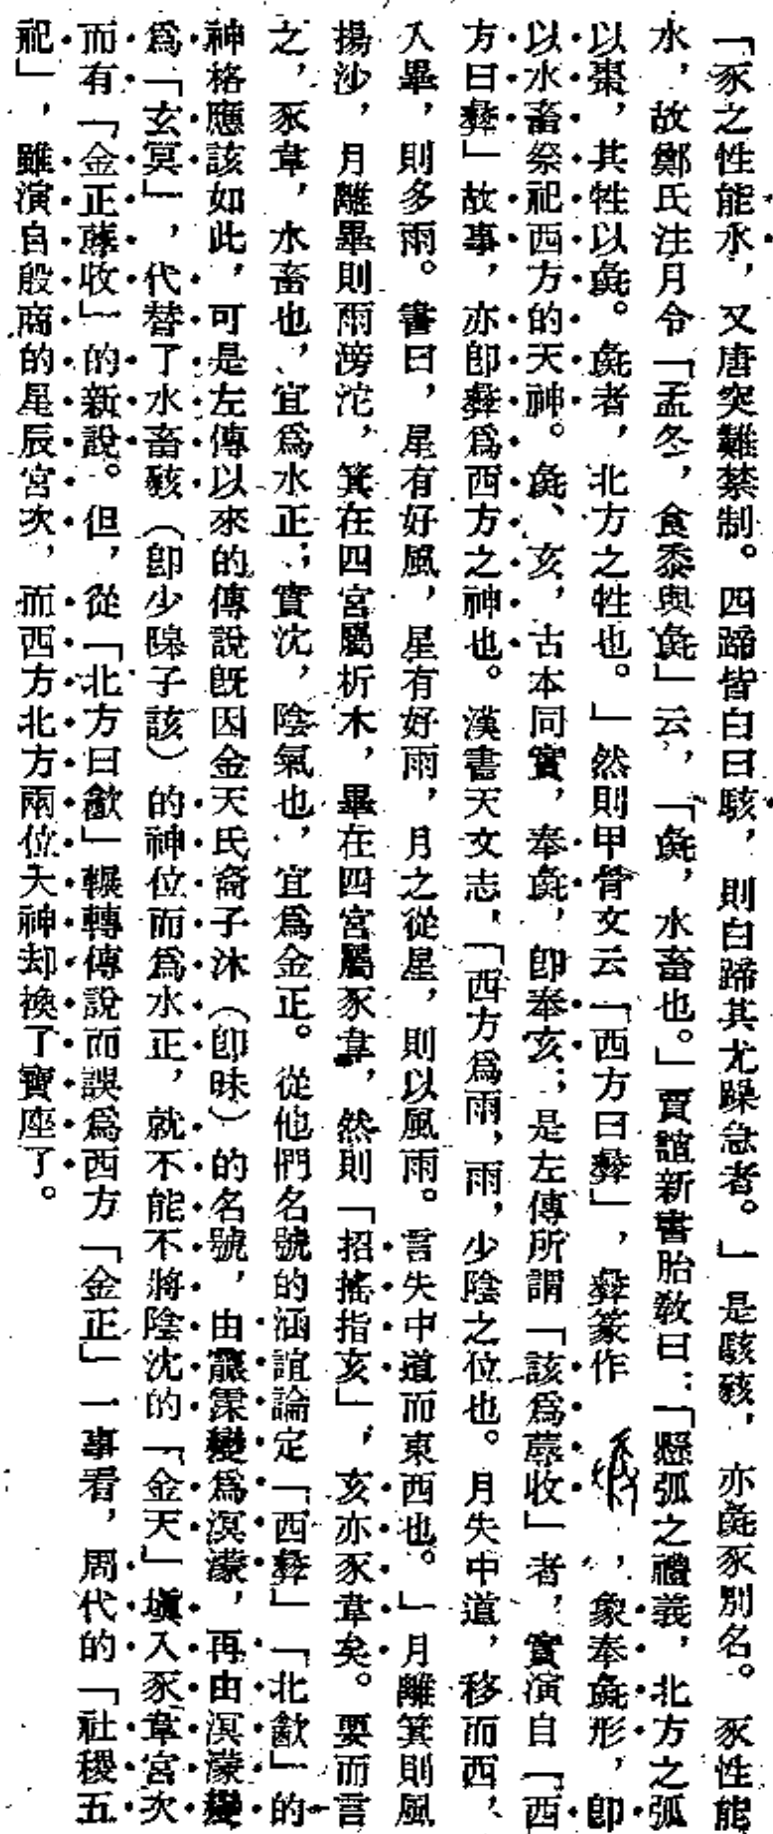 「豕之性能水，又唐突難禁制。四蹄皆白曰駭，則白蹄其尤躁急者。」是駭豥，亦彘豕別名。豕性能
水，故鄭氏注月令「孟冬，食黍與彘」云，「彘，水畜也。」賈誼新書胎敎曰：「懸弧之禮義，北方之弧
以棗，其牲以彘。彘者，北方之牲也。」然則甲骨文云「西方曰彝」，彝篆作　，象奉彘形，卽
以水畜祭祀西方的天神。彘、亥，古本同實，奉彘，卽奉亥；是左傳所謂「該爲蓐收」者，實演自「西
方曰彝」故事，亦卽彝爲西方之神也。漢書天文志，「西方爲雨，雨，少陰之位也。月失中道，移而西，
入畢，則多雨。書曰，星有好風，星有好雨，月之從星，則以風雨。言失中道而東西也。」月離箕則風
揚沙，月離畢則雨滂沱，箕在四宮屬析木，畢在四宮屬豕韋，然則「招搖指亥」，亥亦豕韋矣。要而言
之，豕韋，水畜也，宜爲水正；實沈，陰氣也，宜爲金正。從他們名號的涵誼論定「西彝」「北㱃」的
神格應該如此，可是左傳以來的傳說旣因金天氏裔子沬（卽昧）的名號，由霥霂變爲溟濛，再由溟濛變
爲「玄冥」，代替了水畜豥（卽少皞子該）的神位而爲水正，就不能不將陰沈的「金天」塡入豕韋宮次
而有「金正蓐收」的新說。但，從「北方曰㱃」輾轉傳說而誤爲西方「金正」一事看，周代的「社稷五
祀」，雖演自殷商的星辰宮次，而西方北方兩位大神却換了寶座了。